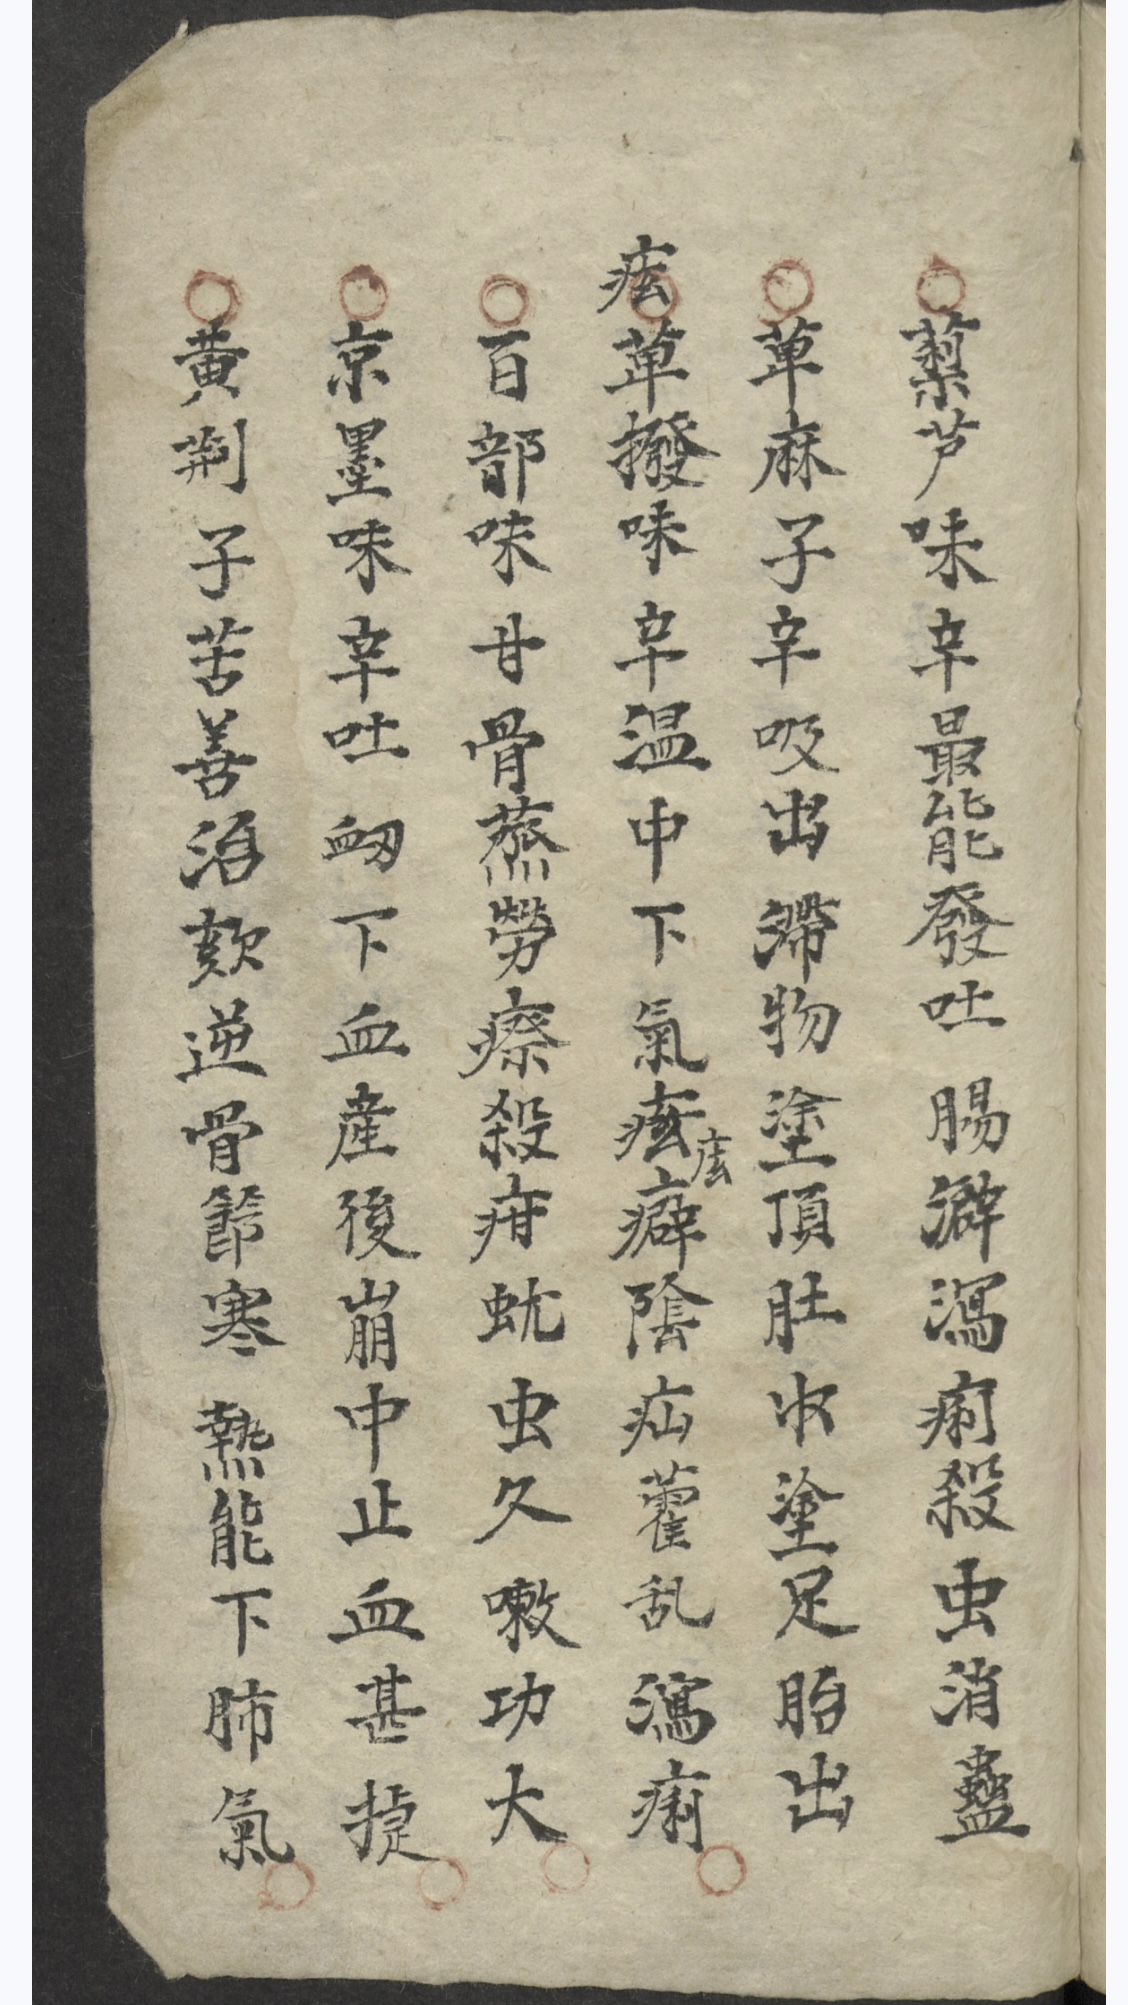 藜芦味辛最能發吐腸澼瀉痢殺虫消蠱
草麻子辛吸出滯物塗頂肚收塗足胎出
痃
草撥味辛温中下氣痃癖陰疝藿乱瀉痢
痃
百部味甘骨蒸勞瘵殺疳蚘虫久嗽功大
京墨味辛吐衂下血産後崩中止血甚㨗
黄荆子苦善治欬逆骨節寒熱能下肺氣